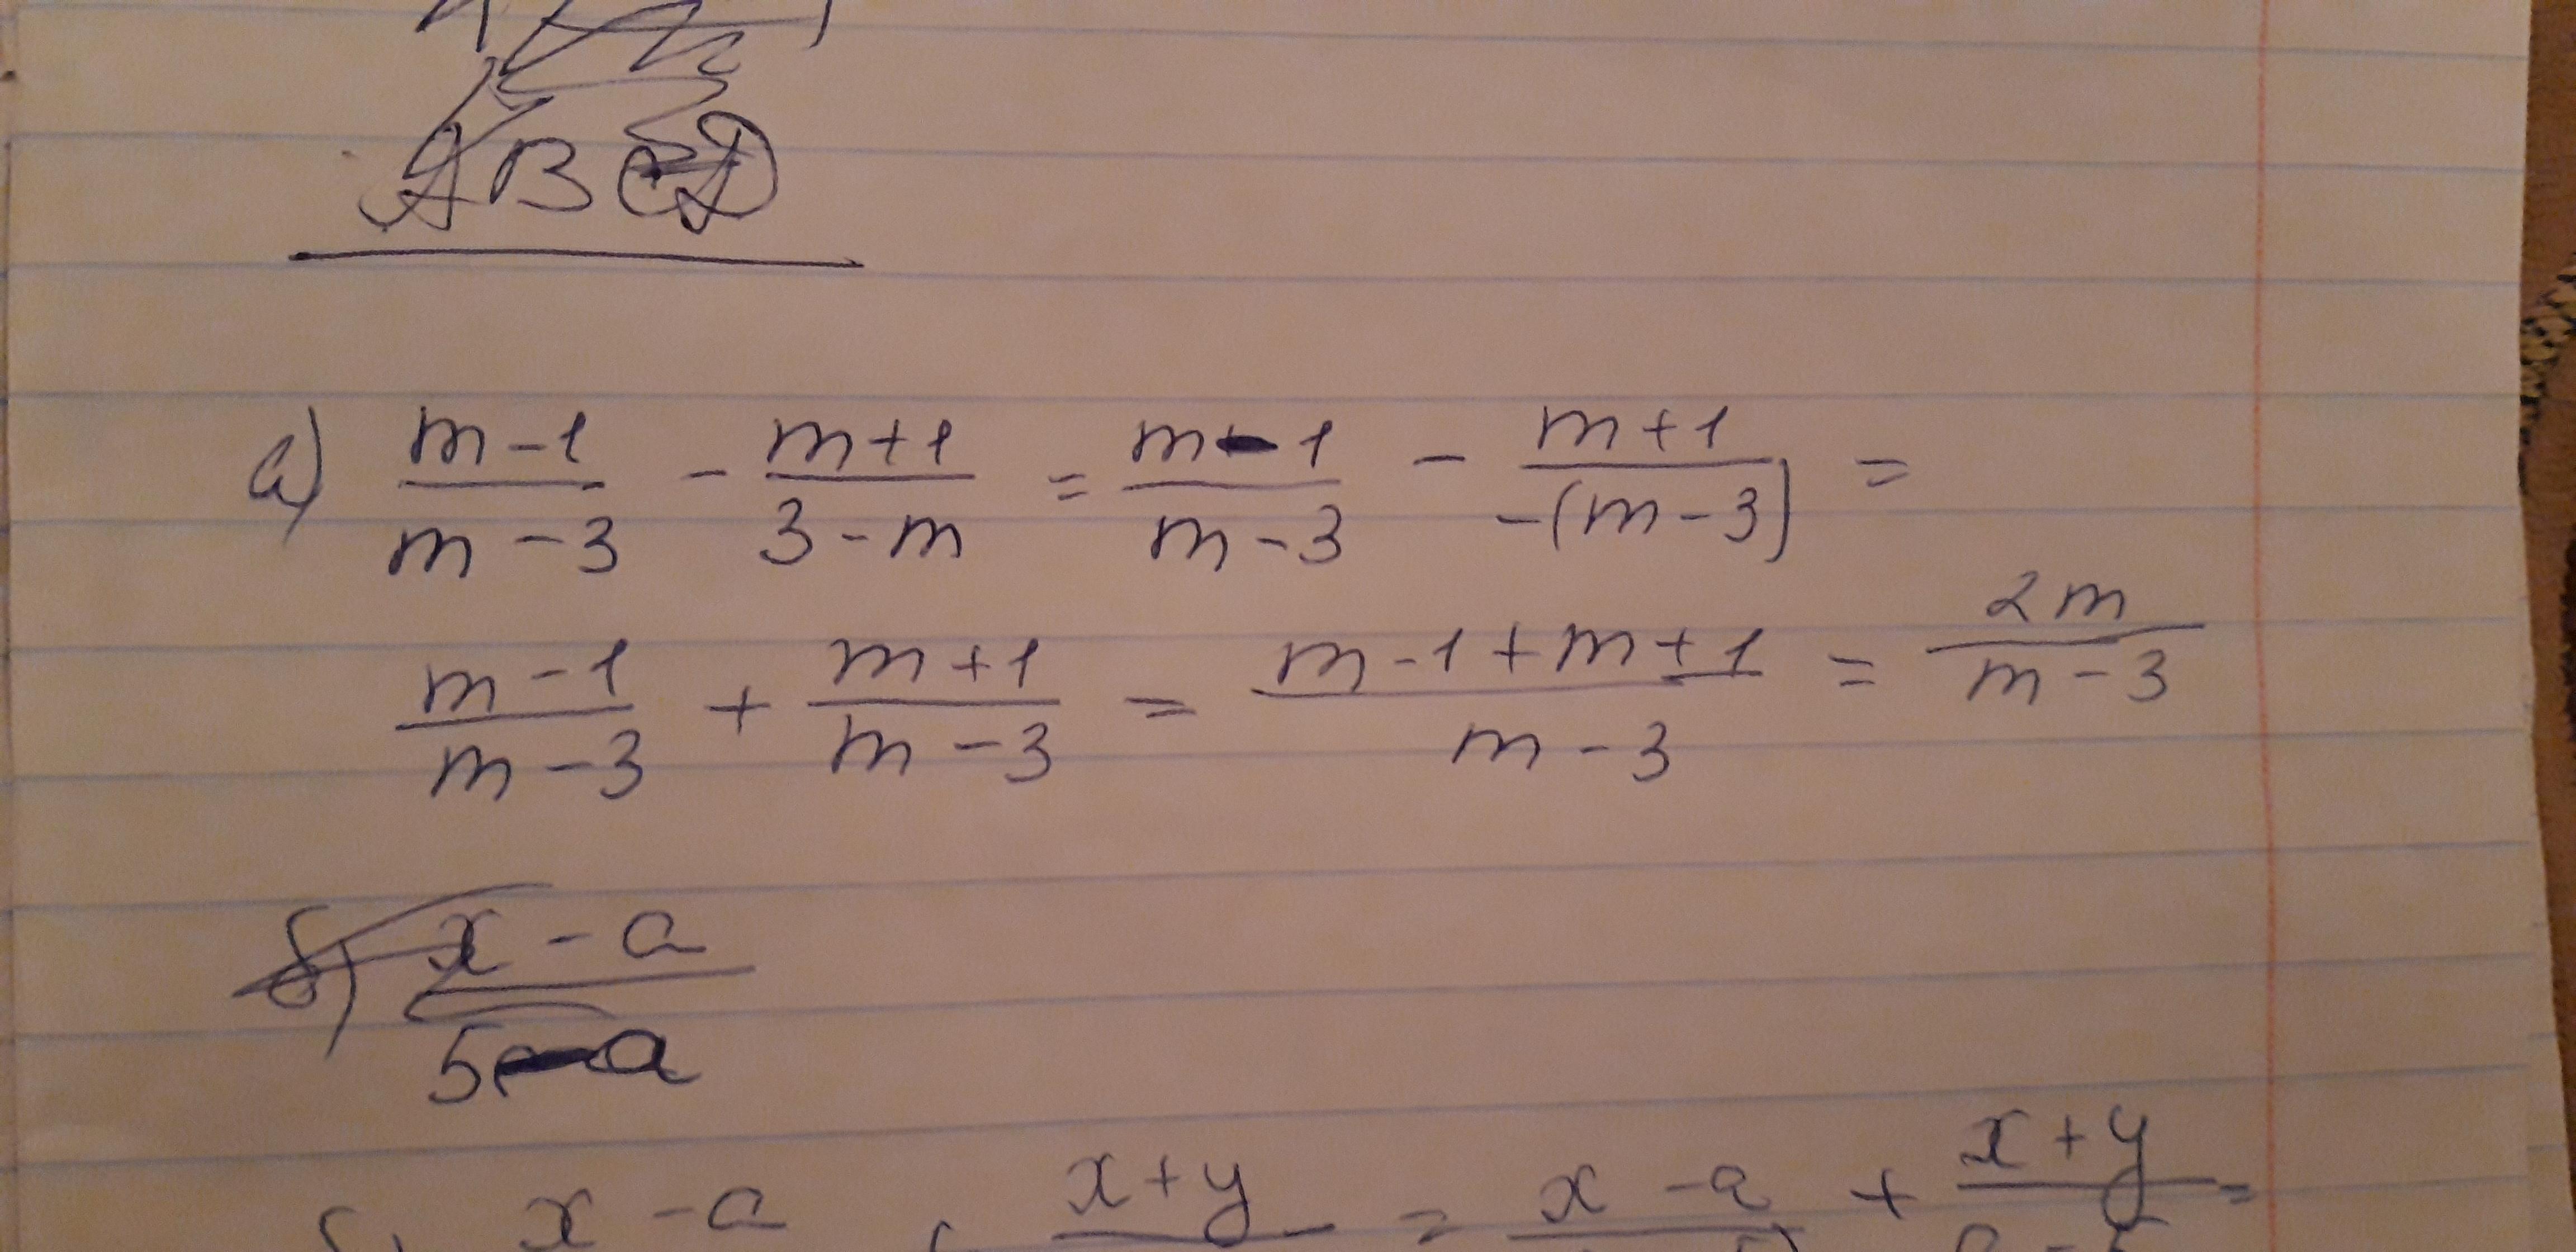 ABCD
а) (m-1)/(m-3) - (m+1)/(3-m) = (m-1)/(m-3) - (m+1)/(-(m-3)) =
(m-1)/(m-3) + (m+1)/(m-3) = (m-1+m+1)/(m-3) = 2m/(m-3)
б) (x-a)/(5-a)
x-a x+y = x-a + x+y =